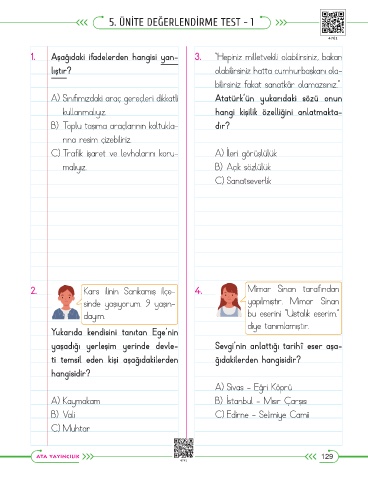 5. ÜNİTE DEĞERLENDİRME TEST - 1
1. Aşağıdaki ifadelerden hangisi yan-
lıştır?
A) Sınıfımızdaki araç gereçleri dikkatli
kullanmalıyız.
B) Toplu taşıma araçlarının koltukla-
rına resim çizebiliriz.
C) Trafik işaret ve levhalarını koru-
malıyız.
2. Kars ilinin Sarıkamış ilçe-
sinde yaşıyorum. 9 yaşın-
dayım.
Yukarıda kendisini tanıtan Ege'nin
yaşadığı yerleşim yerinde devle-
ti temsil eden kişi aşağıdakilerden
hangisidir?
A) Kaymakam
B) Vali
C) Muhtar
3. "Hepiniz milletvekili olabilirsiniz, bakan
olabilirsiniz hatta cumhurbaşkanı ola-
bilirsiniz fakat sanatkâr olamazsınız."
Atatürk'ün yukarıdaki sözü onun
hangi kişilik özelliğini anlatmakta-
dır?
A) İleri görüşlülük
B) Açık sözlülük
C) Sanatseverlik
4. Mimar Sinan tarafından
yapılmıştır. Mimar Sinan
bu eserini "Ustalık eserim."
diye tanımlamıştır.
Sevgi'nin anlattığı tarihî eser aşa-
ğıdakilerden hangisidir?
A) Sivas - Eğri Köprü
B) İstanbul - Mısır Çarşısı
C) Edirne - Selimiye Camii
ATA YAYINCILIK
129